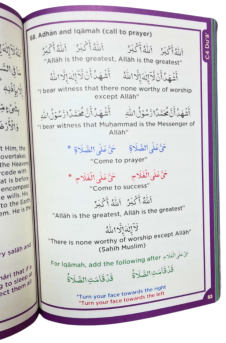 68. Adhān and Iqāmah (call to prayer)
اَللّٰهُ أَكْبَرُ اَللّٰهُ أَكْبَرُ
"Allāh is the greatest, Allāh is the greatest"
أَشْهَدُ أَنْ لَا إِلٰهَ إِلَّا اللّٰهُ أَشْهَدُ أَنْ لَا إِلٰهَ إِلَّا اللّٰهُ
"I bear witness that there none worthy of worship
except Allāh"
أَشْهَدُ أَنَّ مُحَمَّدًا رَسُولُ اللّٰهِ أَشْهَدُ أَنَّ مُحَمَّدًا رَسُولُ اللّٰهِ
"I bear witness that Muhammad is the Messenger of
Allāh"
حَيَّ عَلَى الصَّلَاةِ حَيَّ عَلَى الصَّلَاةِ *
"Come to prayer"
حَيَّ عَلَى الْفَلَاحِ حَيَّ عَلَى الْفَلَاحِ *
"Come to success"
اَللّٰهُ أَكْبَرُ اَللّٰهُ أَكْبَرُ
"Allāh is the greatest, Allāh is the greatest"
لَا إِلٰهَ إِلَّا اللّٰهُ
"There is none worthy of worship except Allāh"
(Sahih Muslim)
For Iqāmah, add the following after حَيَّ عَلَى الْفَلَاحِ
قَدْ قَامَتِ الصَّلَاةُ قَدْ قَامَتِ الصَّلَاةُ
*Turn your face towards the right
*Turn your face towards the left
93
C4 Du'ā'